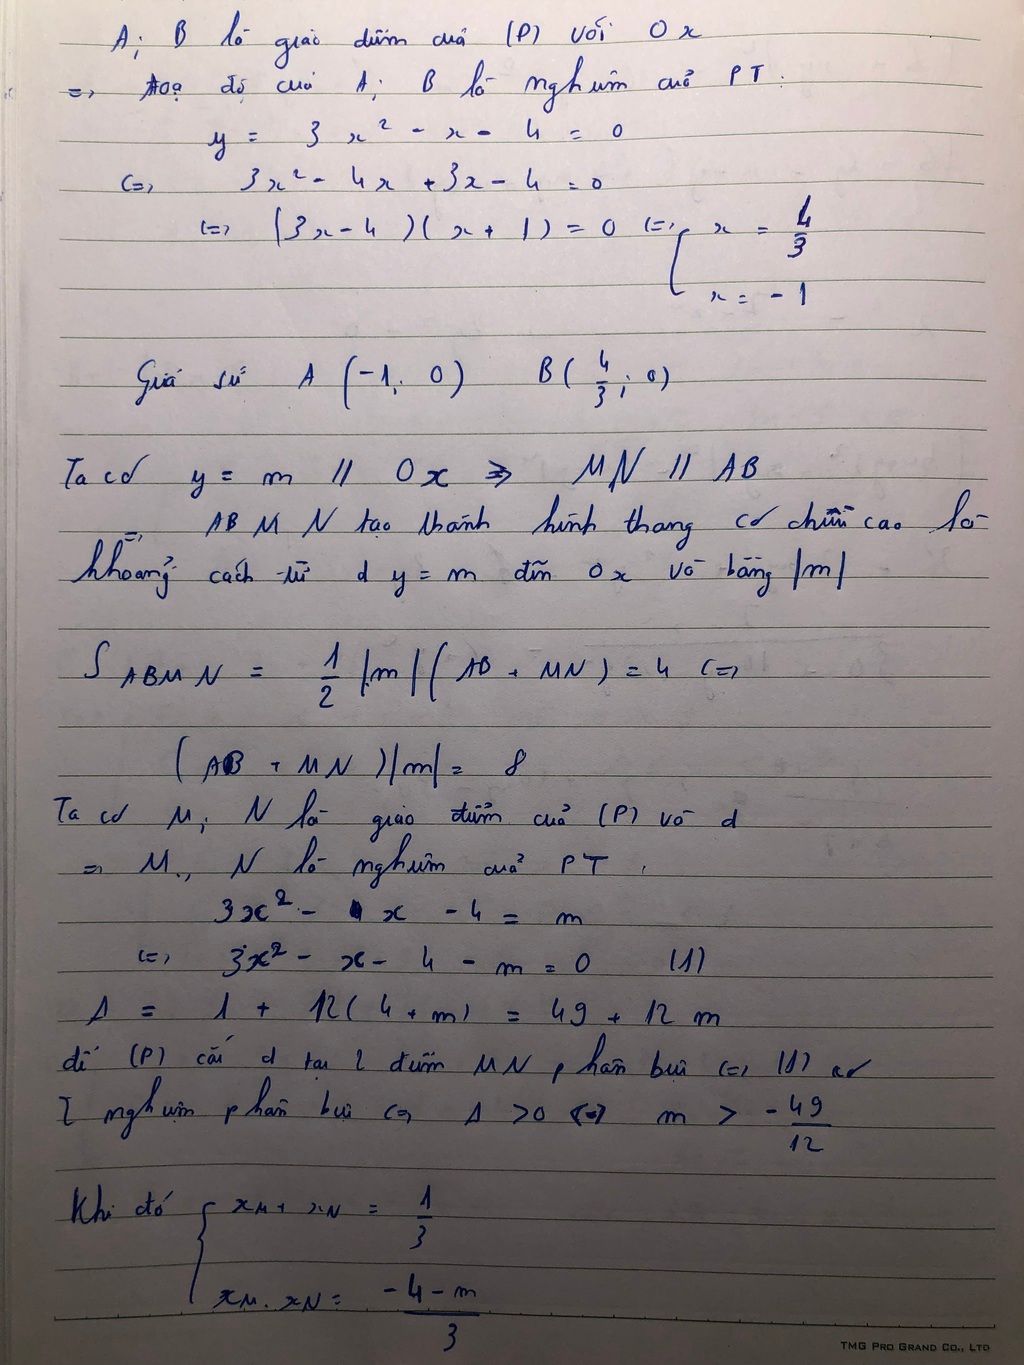 A; B là giao điểm của (P) với Ox
=> Toạ độ của A; B là nghiệm của PT:
y = 3x² - x - 4 = 0
<=> 3x² - 4x + 3x - 4 = 0
<=> (3x - 4)(x + 1) = 0 <=> [ x = 4/3
x = -1
Giả sử A (-1; 0) B( 4/3 ; 0)
Ta có y = m // Ox => MN // AB
=> AB M N tạo thành hình thang có chiều cao là
khoảng cách từ d y = m đến Ox và bằng |m|
S ABMN = 1/2 |m| (AB + MN) = 4 <=>
(AB + MN)|m| = 8
Ta có M; N là giao điểm của (P) và d
=> M, N là nghiệm của PT:
3x² - x - 4 = m
<=> 3x² - x - 4 - m = 0 (1)
Δ = 1 + 12(4 + m) = 49 + 12m
để (P) cắt d tại 2 điểm MN phân biệt <=> (1) có
2 nghiệm phân biệt <=> Δ > 0 <=> m > -49/12
Khi đó { xM + xN = 1/3
xM . xN = -4 - m / 3
TMG PRO GRAND CO., LTD